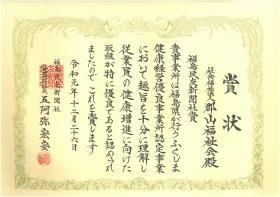 賞状
社会福祉法人 郡山福祉会殿
福島民友新聞社賞
貴事業所は福島県が行うふくしま
健康経営優良事業所認定事業
において趣旨を十分に理解し
従業員の健康増進に向けた
取組が特に優良であると認められ
ましたのでこれを賞します
令和元年十二月二十六日
福島民友新聞社
五阿弥宏安